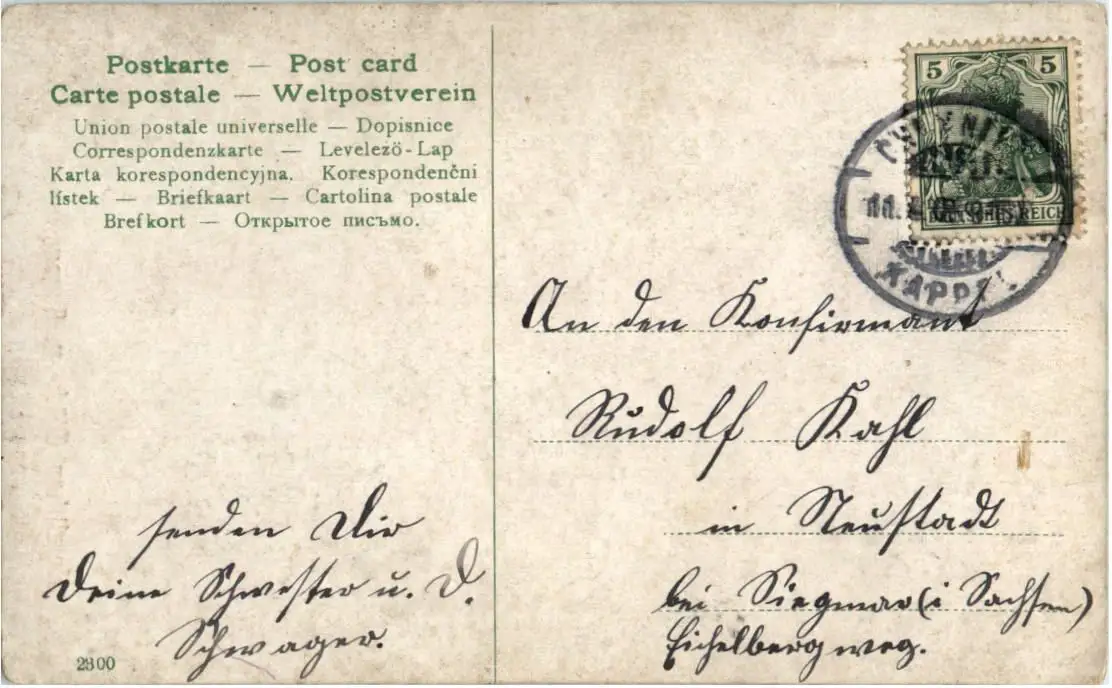 Postkarte — Post card
Carte postale — Weltpostverein
Union postale universelle — Dopisnice
Correspondenzkarte — Levelező-Lap
Karta korespondencyjna. Korespondenční
lístek — Briefkaart — Cartolina postale
Brefkort — Открытое письмо.
senden Dir
Deine Schwester u. D.
Schwager.
2300
5 5
DEUTSCHES REICH
CHEMNITZ
11.
KAPPEL.
An den Konfirmant
Rudolf Kahl
in Neustadt
bei Siegmar (i Sachsen)
Eichelbergweg.